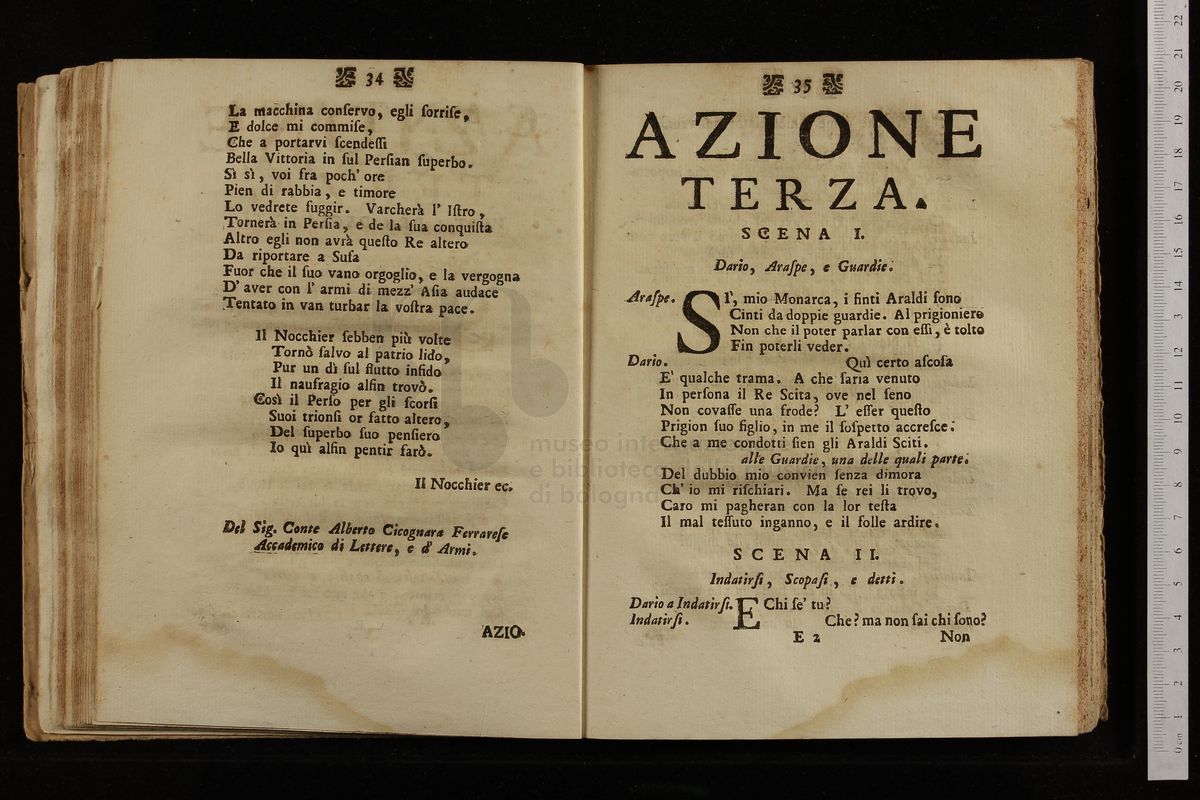 34
La macchina conſervo, egli ſorriſe,
E dolce mi commiſe,
Che a portarvi ſcendeſſi
Bella Vittoria in ſul Perſian ſuperbo.
Sì sì, voi fra poch' ore
Pien di rabbia, e timore
Lo vedrete fuggir. Varcherà l' Iſtro,
Tornerà in Perſia, e de la ſua conquiſta
Altro egli non avrà queſto Re altero
Da riportare a Suſa
Fuor che il ſuo vano orgoglio, e la vergogna
D' aver con l' armi di mezz' Aſia audace
Tentato in van turbar la voſtra pace.
Il Nocchier ſebben più volte
Tornò ſalvo al patrio lido,
Pur un dì ſul flutto infido
Il naufragio alfin trovò.
Così il Perſo per gli ſcorſi
Suoi trionfi or fatto altero,
Del ſuperbo ſuo penſiero
Io quì alfin pentir farò.
Il Nocchier ec.
Del Sig. Conte Alberto Cicognara Ferrareſe
Accademico di Lettere, e d' Armi.
AZIO-
35
AZIONE
TERZA.
SCENA I.
Dario, Araſpe, e Guardie.
Araſpe. SI', mio Monarca, i finti Araldi ſono
Cinti da doppie guardie. Al prigioniero
Non che il poter parlar con eſſi, è tolto
Fin poterli veder.
Dario. Quì certo aſcoſa
E' qualche trama. A che ſaria venuto
In perſona il Re Scita, ove nel ſeno
Non covaſſe una frode? L' eſſer queſto
Prigion ſuo figlio, in me il ſoſpetto accreſce.
Che a me condotti ſien gli Araldi Sciti.
alle Guardie, una delle quali parte.
Del dubbio mio convien ſenza dimora
Ch' io mi riſchiari. Ma ſe rei li trovo,
Caro mi pagheran con la lor teſta
Il mal teſſuto inganno, e il folle ardire.
SCENA II.
Indatirſi, Scopaſi, e detti.
Dario a Indatirſi. E Chi ſe' tu?
Indatirſi. Che? ma non ſai chi ſono?
E 2 Non
museo inte
e biblioteca
di bologna